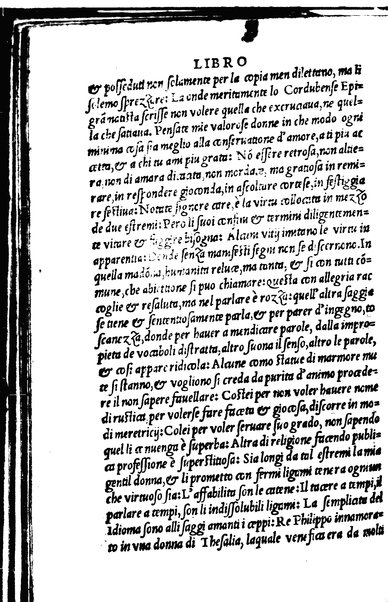 LIBRO
& posseduti non solamente per la copia men dilettano, ma li
solemo sprezzare: La onde meritamente lo Cordubense Epi
grammatista scrisse non volere quella che excruciava, ne quel-
la che satiava. Pensate mie valorose donne in che modo ogni
minima cosa fa meglio alla conseruatione d'amore, a ti piac
cetta, & a chi tu am piu grata: Nō essere retrosa, non altie-
ra, non di amara dictata, non mordace, ma gratiosa in remi-
rare, in respondere gioconda, in ascoltare cortese, in festiggia
re festiua: Notate signore care, è la virtu collocata in mezzo
de due estremi: Pero li suoi confini & termini diligentemen-
te vitare & fuggire bisogna: Alcuni vitij imitano le virtu in
apparentia: Donde senza manifesti segni non se discernono. In
quella madōna humanita reluce, ma tanta, & si con tutti cō-
mune, che abiettione si puo chiamare: questa con allegria rac
coglie & resaluta, ma nel parlare è rozza: quell'altra saggia
se tiene & sententiosamente parla, & per parer d'ingegno, to
scanezza, donde per hauer a mendicare parole, dalla impro-
pieta de vocaboli distratta, altro suona il senso, altro le parole,
& cosi appare ridicola: Alcune come statue di marmore mu
te si stanno, & vogliono si creda da purita d'animo procede-
re il non sapere fauellare: Costei per non voler hauere nome
di rustica, per volerse fare faceta & giocosa, discorre in mo-
di meretricij: Colei per voler seruare suo grado, non sapendo
quel li cōuenga è superba: Altra di religione facendo publi-
ca professione è superstitiosa: Sia longi da tal estremi la mia
gentil donna, & li prometto con fermi ligami tenera ognun
che virtuoso sia: L'affabilita son le catene: Il tacere a tempi, il
parlare a tempi, son li indissolubili ligami: La semplicita del
Idioma sono alli saggi amanti i ceppi: Re Philippo innamora-
to in vna donna di Thesalia, laquale venefica era da molti